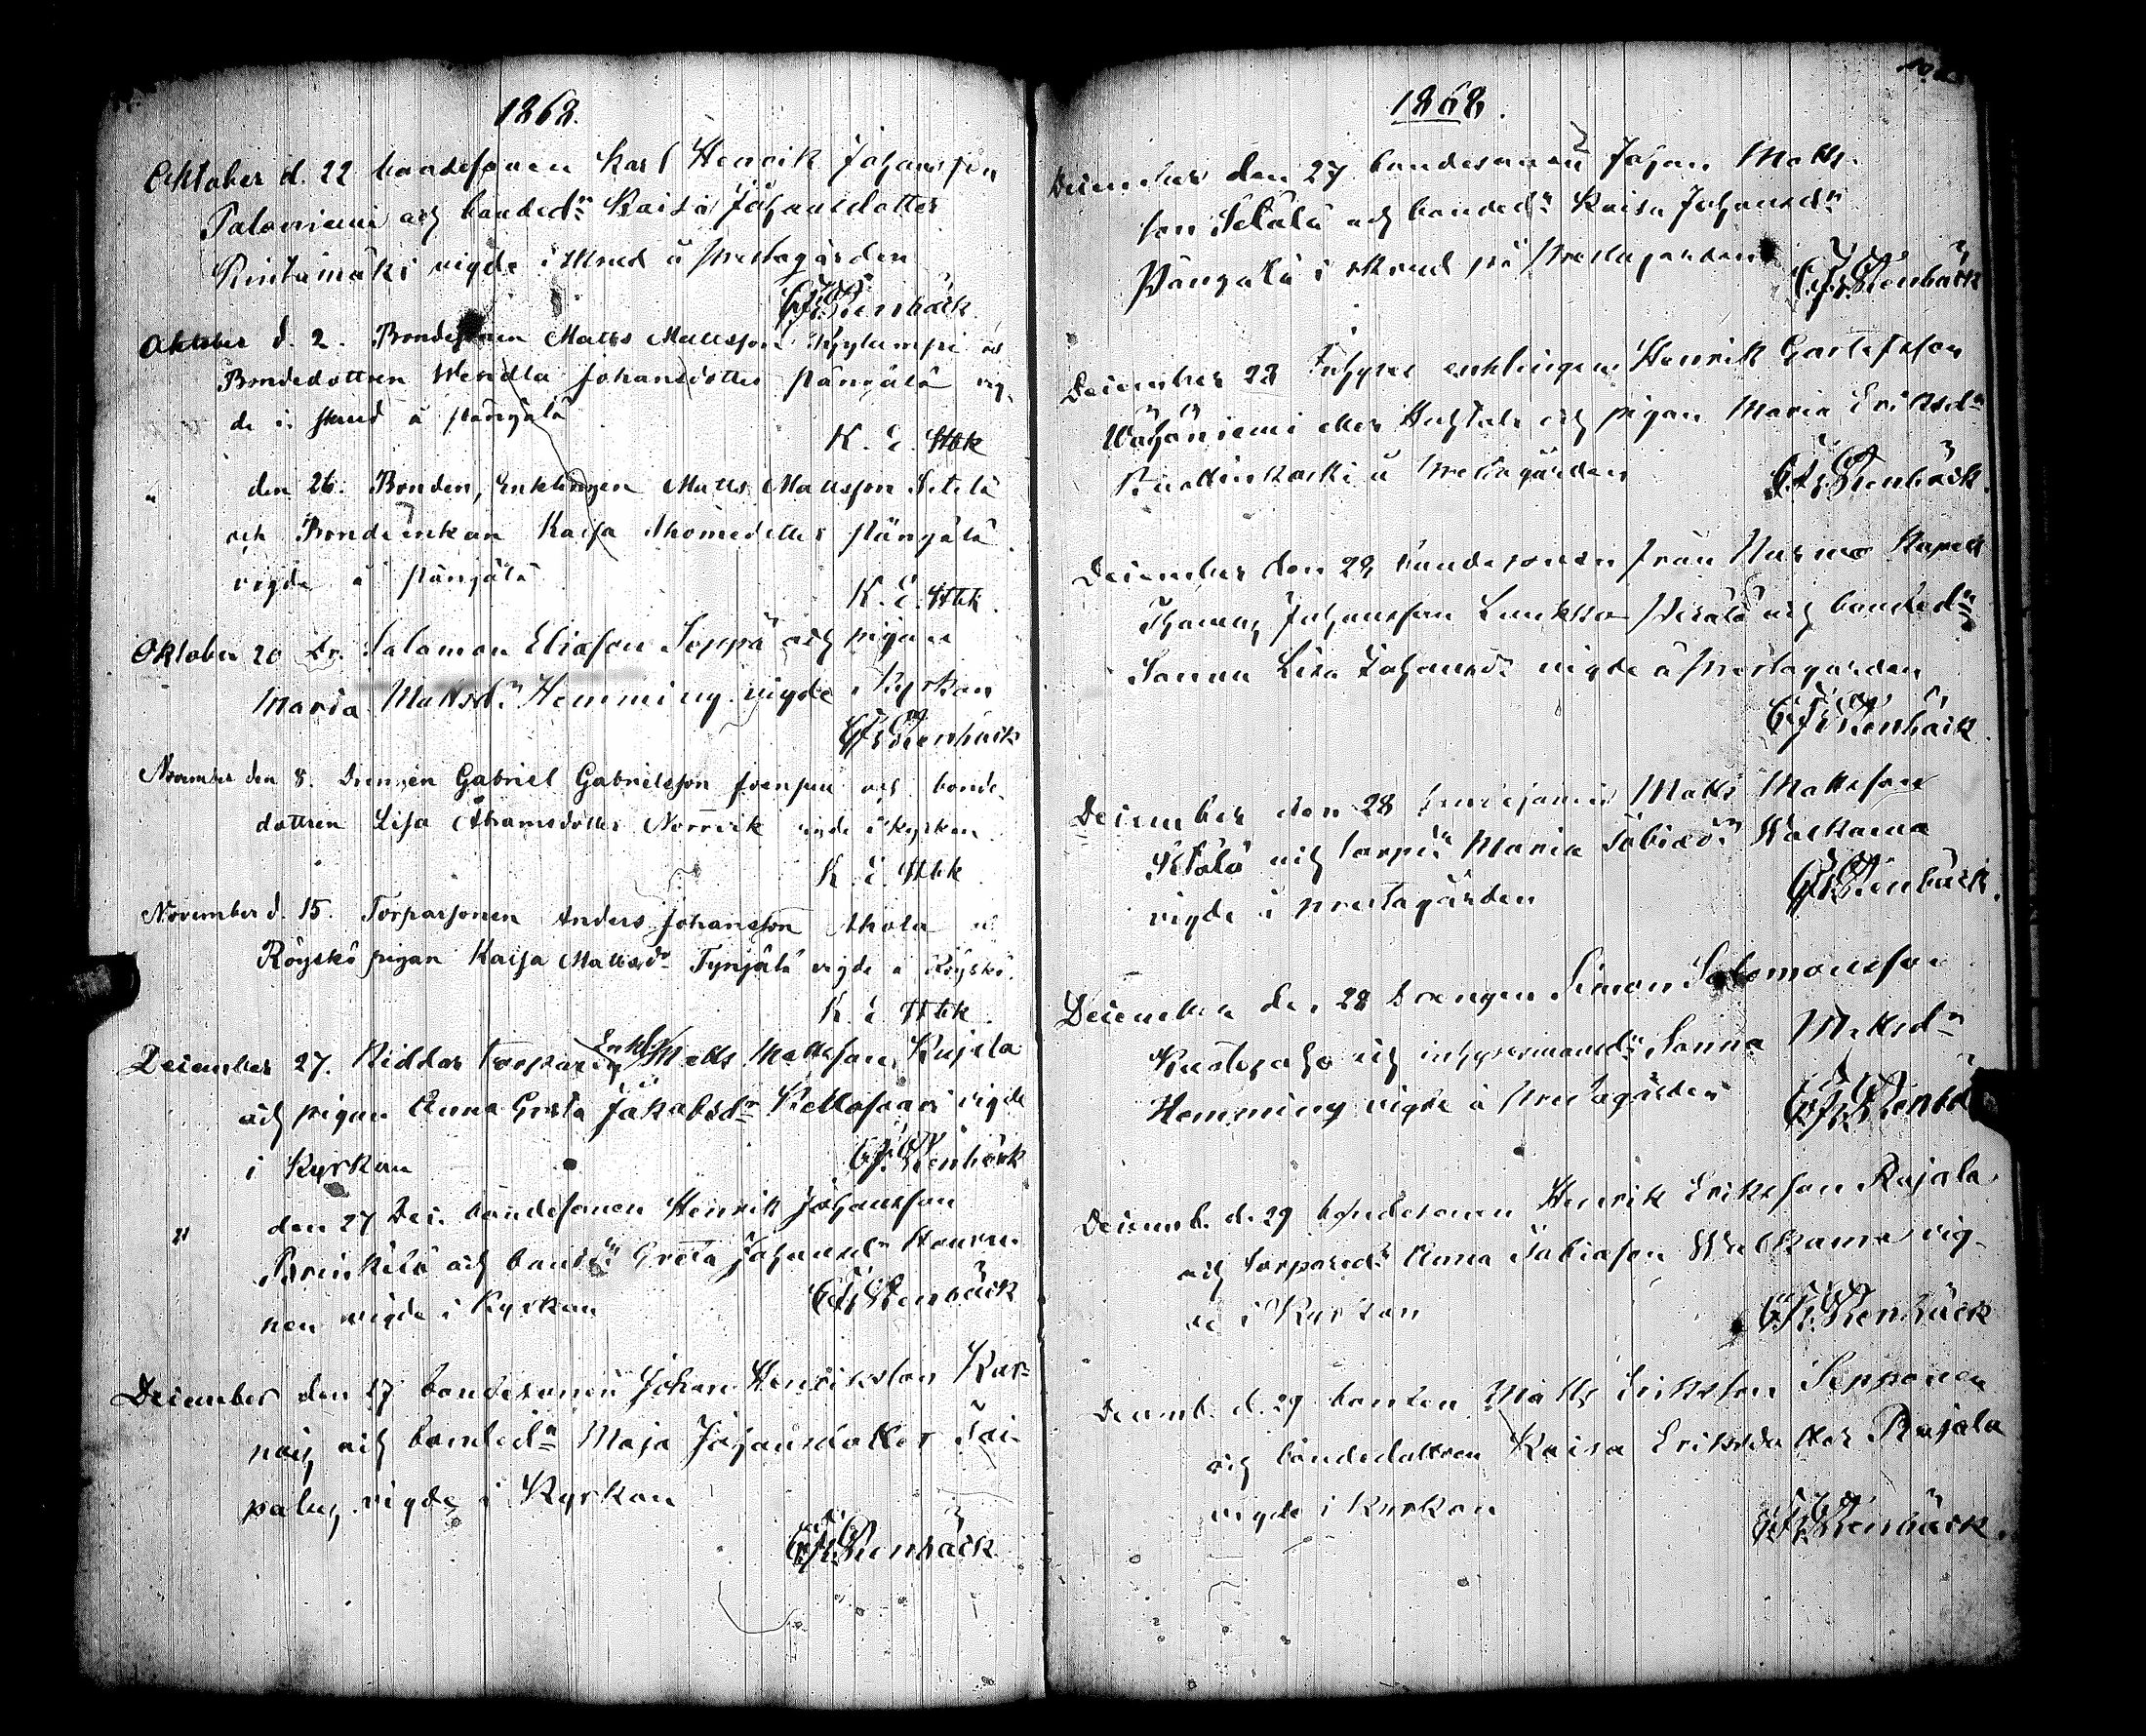 1868.
Oktober d. 22 bondesonen Karl Henrik Johansson
Paloniemi och bonded:n Kaisa Johansdotter
Rintamäki vigde i skrud å Prestagården
C F Stenbäck
Oktober d. 2. Bondesonen Matts Mattsson Kylänpä o
Bondedottren Wendla Johansdotter Pängälä vig
de i skrud å Pängälä
K. E. Stbk
" den 26. Bonden, Enklingen Matts Mattsson Setälä
och Bondeenkan Kaisa Thomedotter Pängälä
vigde å Pängälä
K. E. Stbk.
Oktober 20 Dr. Salomon Eliasson Seppä och pigan
Maria Mattsd:r Hemming vigde i Kyrkan
C F Stenbäck
November den 8. Drengen Gabriel Gabrielsson och bonde-
dottren Lisa Abramsdotter Norrvik vigde i kyrkan
K. E. Stbk
November d. 15. Torparsonen Anders Johansson Ahola
Röyskö pigan Kaisa Mattsd:r Tynjälä vigde å Röyskö.
K. E. Stbk.
December 27. Riddar torparen Enkl. Matts Mattsson Rujala
och pigan Anna Greta Jakobsd:r vigde
i Kyrkan
C F Stenbäck
" den 27 Dec. bondesonen Henrik Johansson
Brinkilä och bonded:n Greta Johansd:r
nen vigde i Kyrkan
C F Stenbäck
December den 27 bondesonen Johan Henriksson Kar-
och bonded:n Maja Johansdotter Sai-
vigde i Kyrkan
C F Stenbäck
1868.
December den 27 bondesonen Johan Matts-
son Setälä och bonded:n Kaisa Johansd:r
Pängälä i skrud på Prestagården
C. F. Stenbäck
December 28 Inhyses enklingen Henrik Gustafsson
Wähäniemi eller Huhtala och pigan Maria Eriksd:r
å Prestagården
C. F. Stenbäck.
December den 28 bondesonen från Nurmo Kapell
Thomas Johansson Luukko Perälä och bonded:n
Sanna Lisa Johansd:r vigde å Prestagården
C F Stenbäck.
December den 28 bondesonen Matts Mattsson
Setälä och torp:n Maria Tobiasd:r Walkama
vigde å prestagården
C F Stenbäck.
December den 28 Drengen Simon Salomonsson
och inhysesmansd:n Sanna Mattsd:r
Hemming vigde å Prestagården
C F Stenbäck
Decemb. d. 29 bondesonen Henrik Eriksson Rajala
och torpared:n Anna Tobiasson Walkama vig-
de i Kyrkan
C F Stenbäck
Decemb. d. 29 bonden Matts Eriksson Sepponen
och bondedottren Kaisa Eriksdotter Rajala
vigde i Kyrkan
C F Stenbäck.